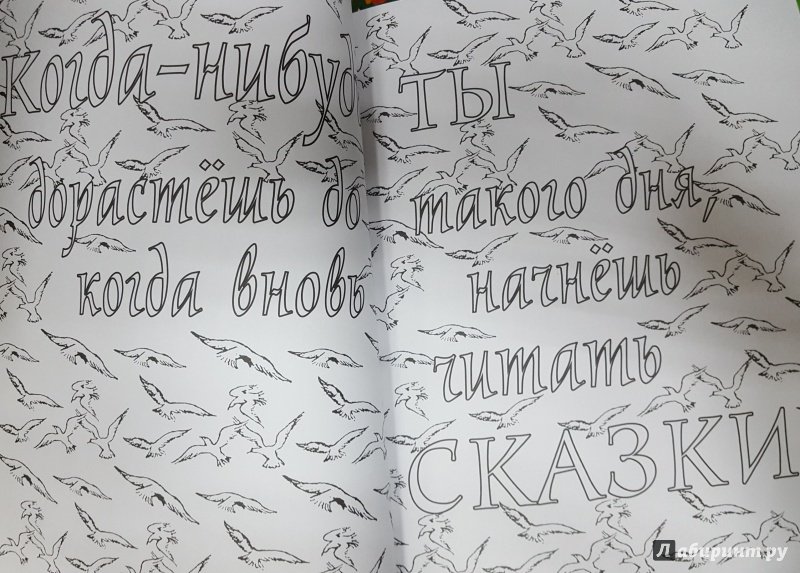 когда-нибудь ТЫ
дорастёшь до такого дня,
когда вновь начнёшь
читать
СКАЗКИ
Лабиринт.ру